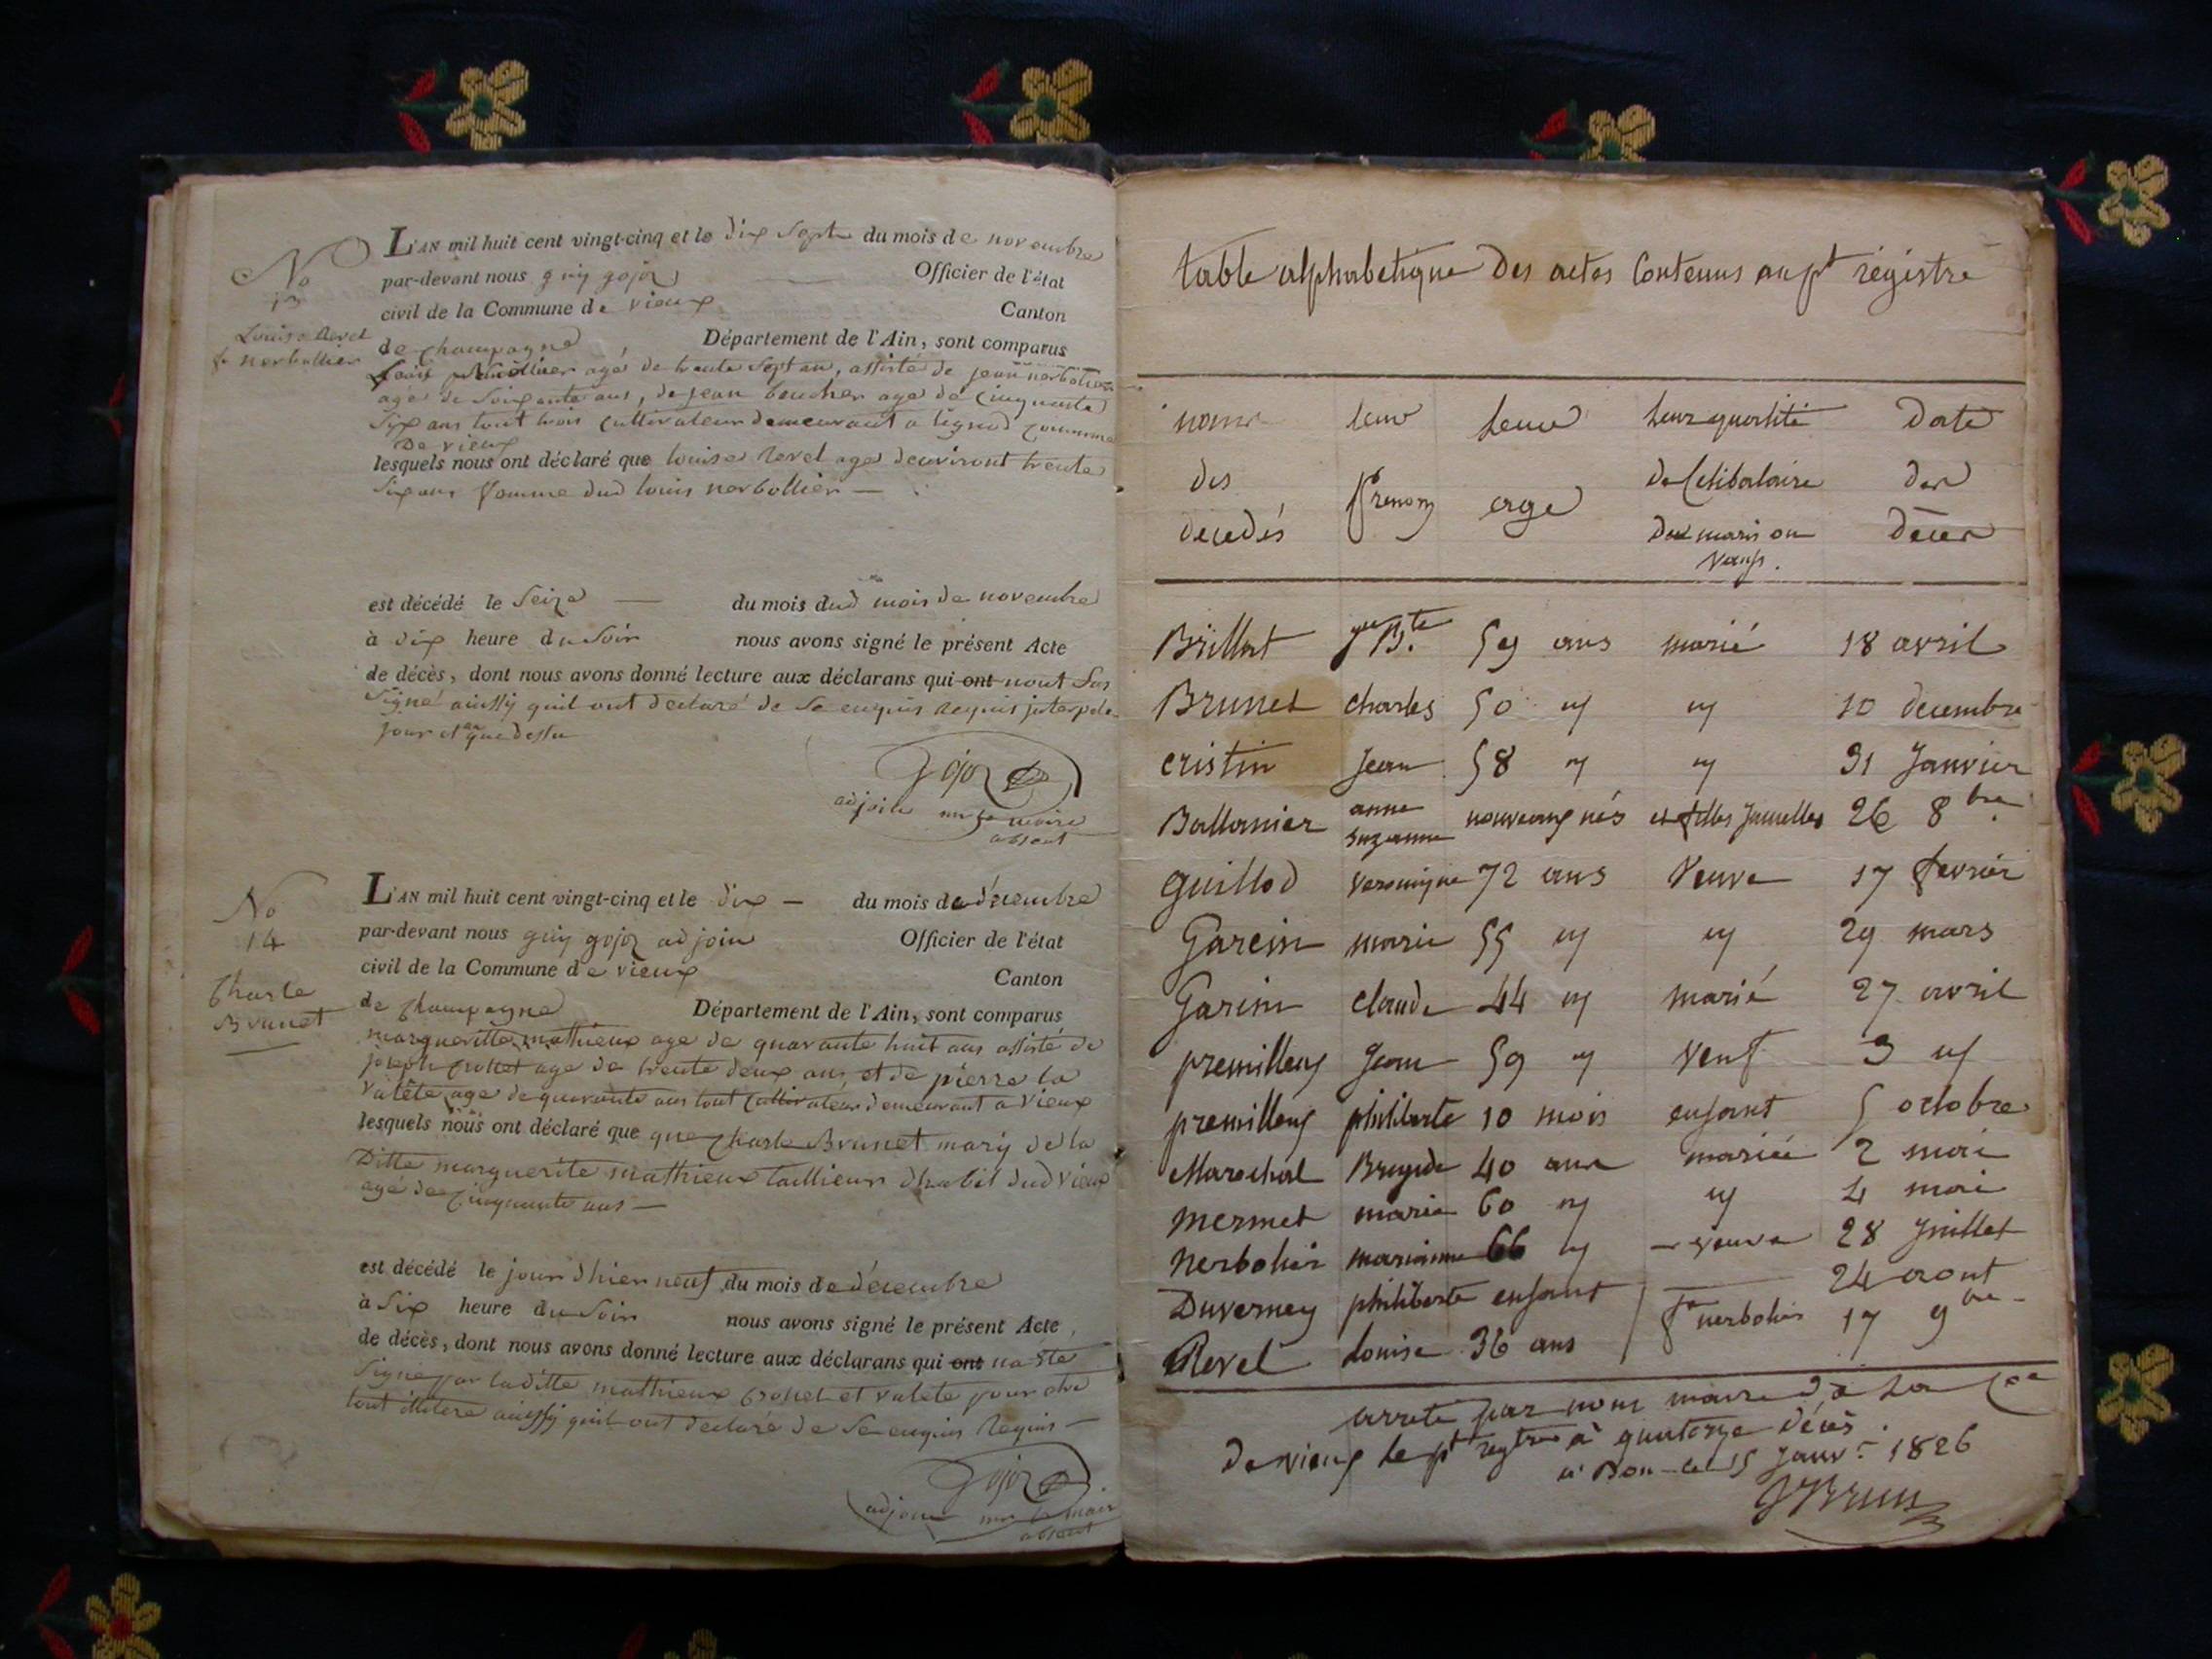 No
13
Louise Revel
fe nerbollier
L'AN mil huit cent vingt-cinq et le dix Septe du mois de novembre
par-devant nous guy gojoz Officier de l'état
civil de la Commune de vieux Canton
de Champagne Département de l'Ain, sont comparus
Louis nerbollier agé de trente Sept an, assisté de jean nerbollier
agé de Soixante ans, de jean boucher agé de Cinquante
Six ans tout trois Cultivateur demeurant a lignod Commune
De vieux
lesquels nous ont déclaré que louise Revel age deuviront trente
Six ans famme dud louis nerbollier —
est décédé le Seize — du mois dud mois de novembre
à dix heure du Soir nous avons signé le présent Acte
de décès, dont nous avons donné lecture aux déclarans qui ont nont Pas
Signé ainssy quil ont declaré de Se enquis Requis
jour et an que dessu
Gojoz
adjoile le maire
absent
No
14
Charle
Brunet
L'AN mil huit cent vingt-cinq et le dix — du mois de décembre
par-devant nous guy gojoz adjoin Officier de l'état
civil de la Commune de vieux Canton
de Champagne Département de l'Ain, sont comparus
margueritte mathieux age de quarante huit ans assisté de
joseph age de trente deux ans et de pierre la
valéte age de quarante ans tout Cultivateur demeurant a vieux
lesquels nous ont déclaré que que Charle Brunet mary de la
Ditte marguerite mathieux taillieur dhabit dud vieux
agé de Cinquante ans —
est décédé le jour dhier neuf du mois de décembre
à Six heure du Soir nous avons signé le présent Acte
de décès, dont nous avons donné lecture aux déclarans qui ont na Ste
Signé par laditte mathieux et valete pour etre
tout illitere ainssy quil ont declaré de Se enquis Requis —
Gojoz
adjoin le maire
absent
table alphabetique Des actes Contenus au pt régistre
noms leur leur leur qualité Date
des prenom age de Celibataire des
décédés de maris ou décès
veufs.
Brillat jn Bte 59 ans marié 18 avril
Brunet charles 50 " " 10 decembre
cristin Jean 58 " " 31 Janvier
Ballanier anne suzanne nouveaux nés et filles Jumelles 26 8bre
guillod veronique 72 ans Veuve 17 fevrier
Garcin marie 55 " " 29 mars
Garin claude 44 " marié 27 avril
premilleux Jean 59 " veuf 3 "
premilleux philiberte 10 mois enfant 5 octobre
Marechal Brigide 40 ans mariée 2 mai
mermet marie 60 " " 4 mai
nerbolier marianne 66 " — veuve 28 Juillet
Duverney philiberte enfant — 24 aout
Revel Louise 36 ans fe nerbolier 17 9bre
arreté par nous maire de la Cne
de vieux le pt regtre à quatorze décés
a Don le 15 Janv. 1826
JBrun